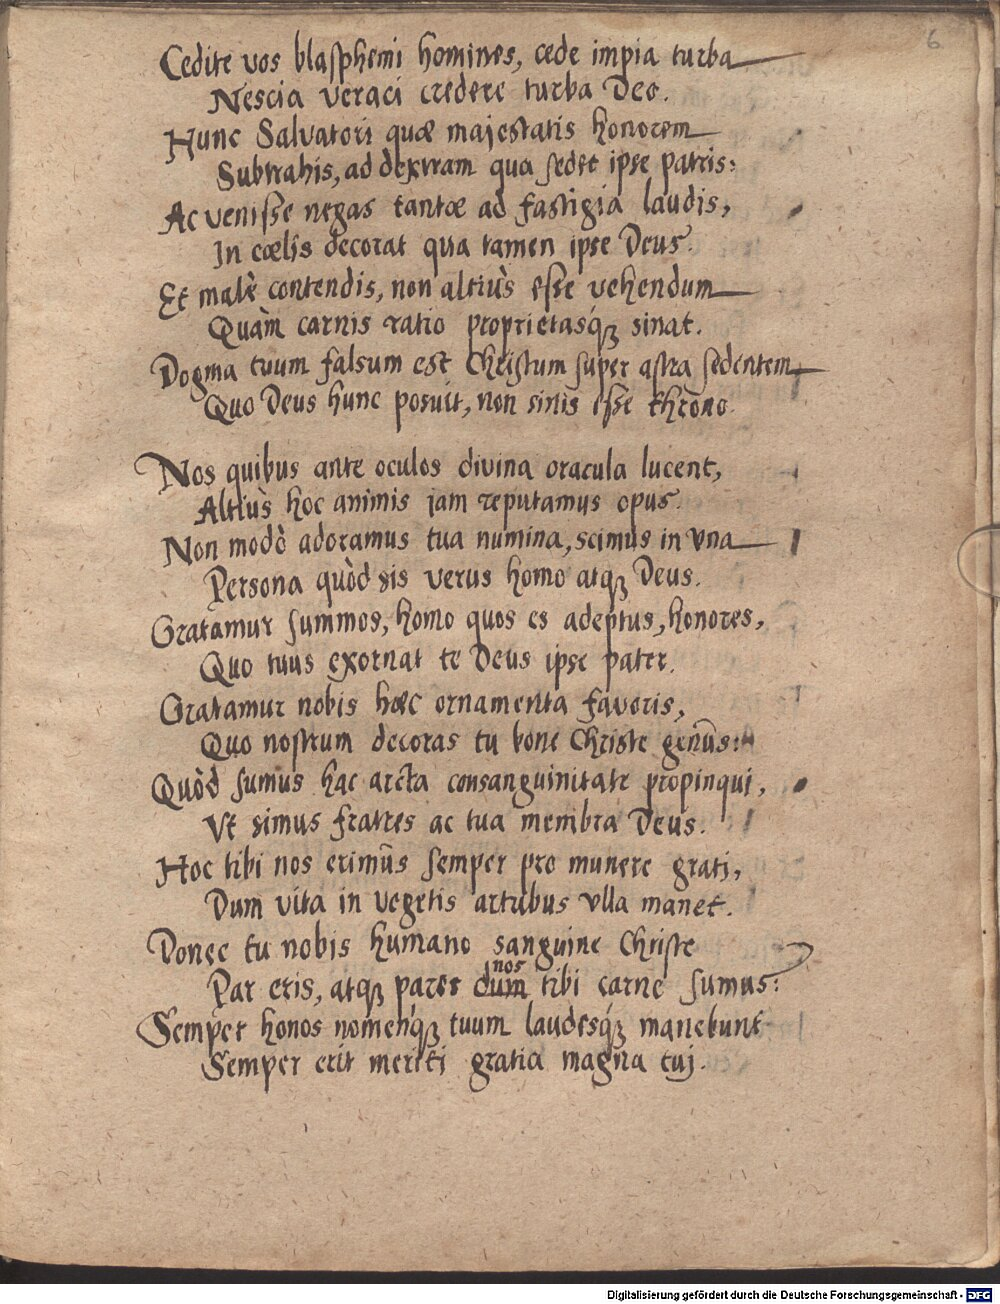 6
Cedite vos blasphemi homines, cede impia turba
Nescia veraci credere turba Deo.
Hunc Salvatori quæ majestatis honorem
Subtrahis, ad dextram qua sedet ipse patris:
Ac venisse negas tantæ ad fastigia laudis,
In cœlis decorat qua tamen ipse Deus.
Et malè contendis, non altiùs esse vehendum
Quàm carnis ratio proprietasq́ꝫ sinat.
Dogma tuum falsum est Christum super astra sedentem
Quo Deus hunc posuit, non sinis esse throno.
Nos quibus ante oculos divina oracula lucent,
Altiùs hoc animis jam reputamus opus.
Non modò adoramus tua numina, scimus in vna
Persona quòd sis verus homo atqꝫ Deus.
Gratamur summos, homo quos es adeptus, honores,
Quo tuus exornat te Deus ipse pater.
Gratamur nobis hæc ornamenta favoris,
Quo nostrum decoras tu bone Christe genus:
Quòd sumus hac arcta consanguinitate propinqui,
Vt simus fratres ac tua membra Deus.
Hoc tibi nos erimus semper pro munere grati,
Dum vita in vegetis artubus vlla manet.
Donec tu nobis humano sanguine Christe
nos
Par eris, atqꝫ pares dum tibi carne sumus:
Semper honos nomenq́ꝫ tuum laudesq́ꝫ manebunt
Semper erit meriti gratia magna tuj.
Digitalisierung gefördert durch die Deutsche Forschungsgemeinschaft - DFG